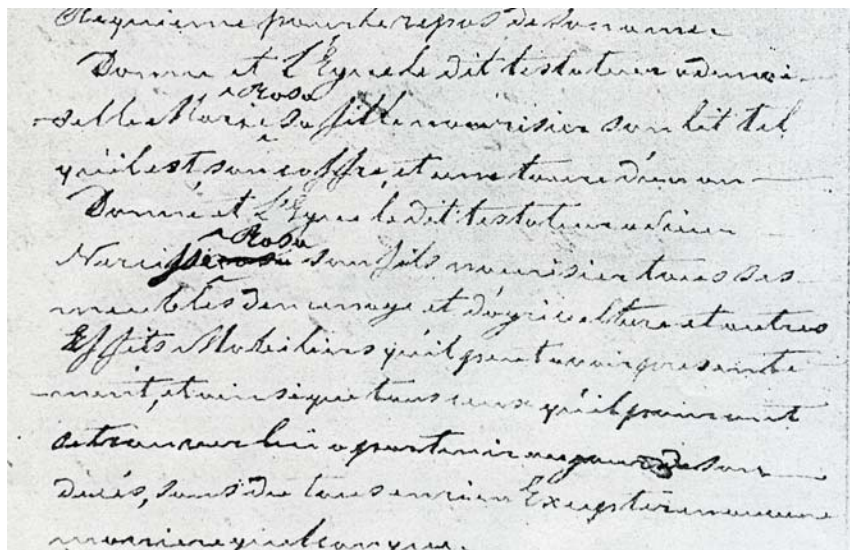 Requieme pour le repos de son ame.
Donne et L'Egue le dit testateur a demoi-
Rosa
-selle Marie sa fille nourisier son lit tel
qu'il est son coffre, et une taure d'un an
Donne et L'Egue le dit testateur a sieur
Rosa
Narcisse son fils nourisier tous ses
meubles de menage et d'agriculture et autres
Effits Mobiliers qu'il peut avoir presente-
-ment, et ainsi que tous ceux qu'il pouront
se trouver lui apartenir au jour de son
décés, sans du tous en rien Excepter en aucune
maniere quelconque.